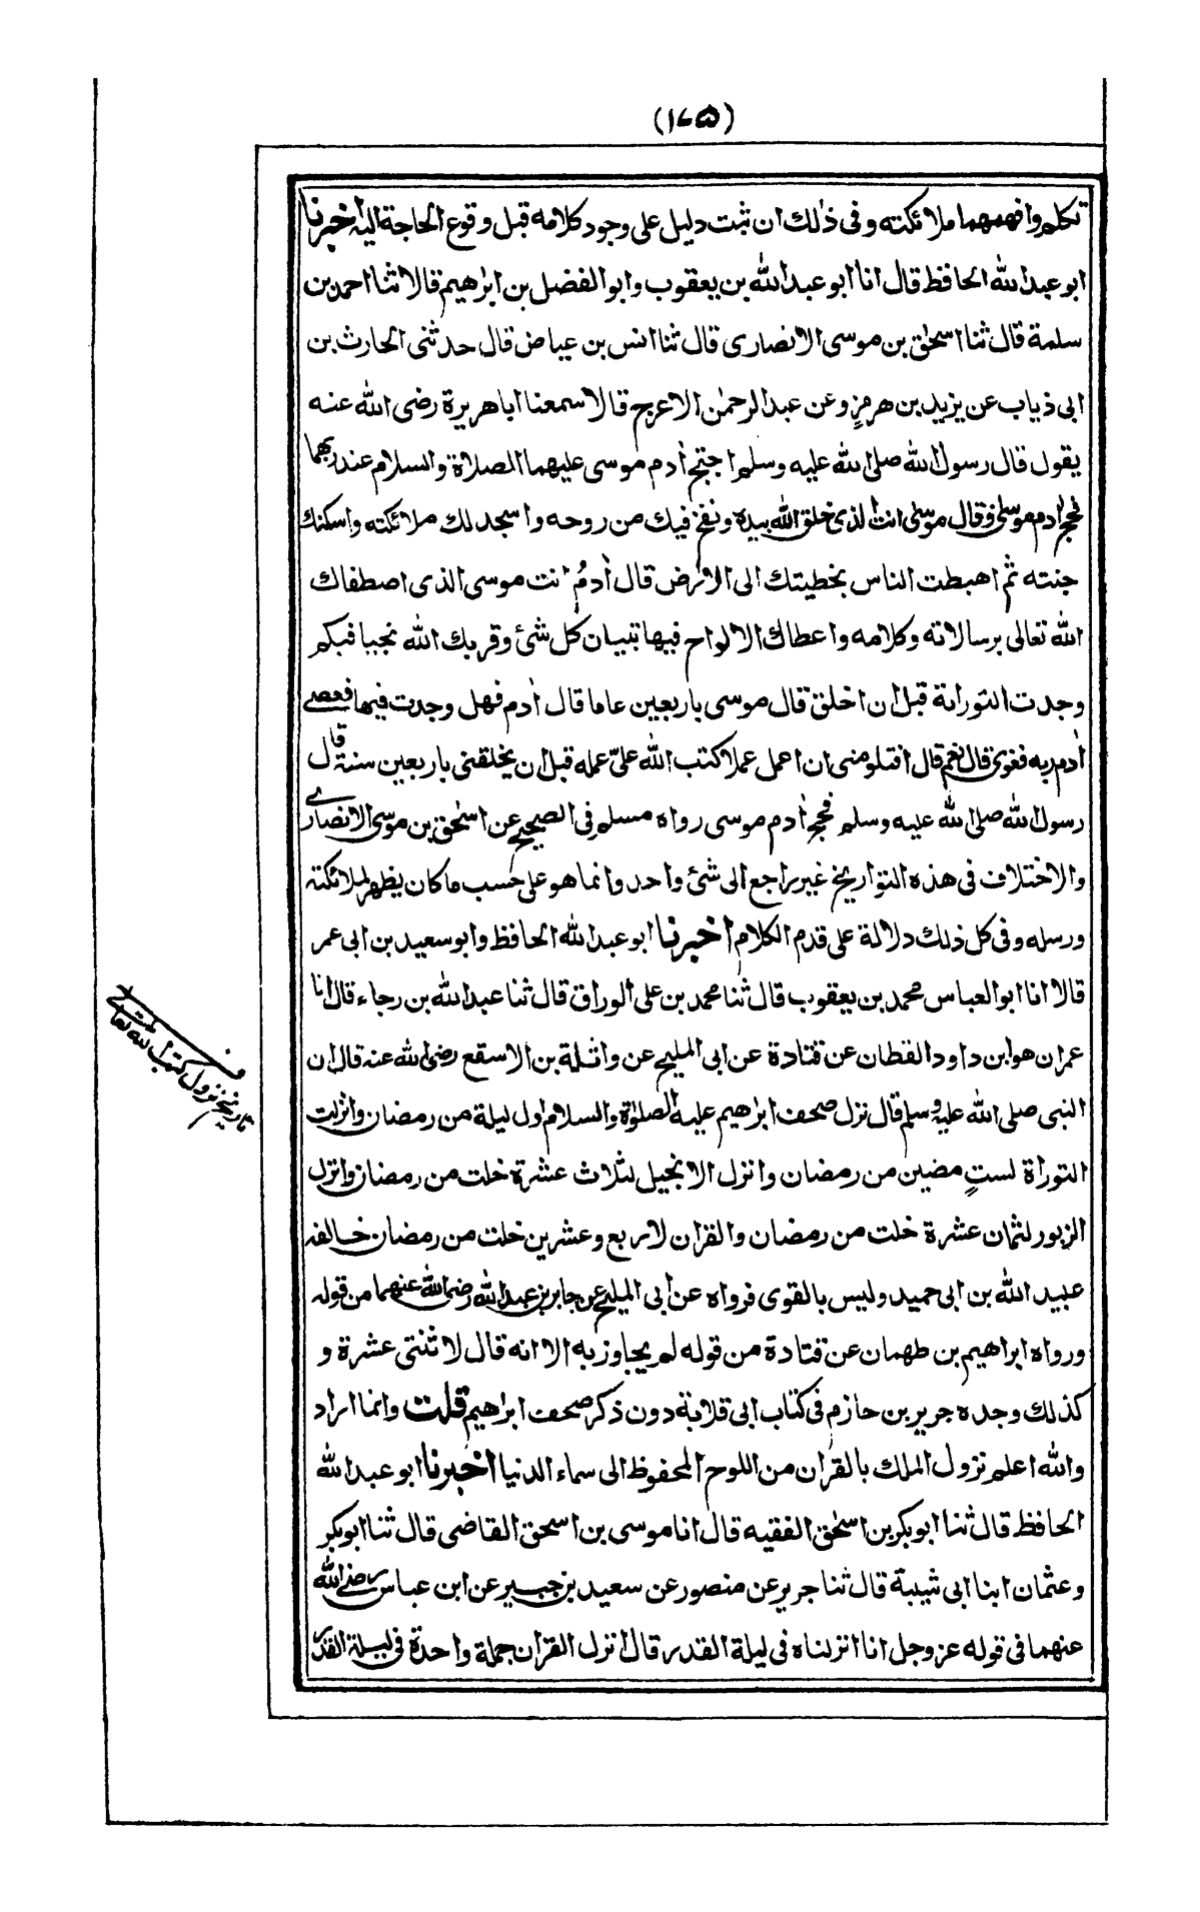 (١٧٥)
تكلم وافهمهما ملائكته وفى ذلك ان ثبت دليل على وجود كلامه قبل وقوع الحاجة اليه اخبرنا
ابو عبد الله الحافظ قال انا ابو عبد الله بن يعقوب وابو الفضل بن ابراهيم قالا ثنا احمد بن
سلمة قال ثنا اسحٰق بن موسى الانصارى قال ثنا انس بن عياض قال حدثنى الحارث بن
ابى ذياب عن يزيد بن هرمز وعن عبد الرحمٰن الاعرج قالا سمعنا ابا هريرة رضى الله عنه
يقول قال رسول الله صلى الله عليه وسلم احتج اٰدم موسى عليهما الصلاة والسلام عند ربهما
فحج اٰدم موسى وقال موسى انت الذى خلق الله بيده ونفخ فيك من روحه واسجد لك ملائكته واسكنك
جنته ثم اهبطت الناس بخطيتك الى الارض قال اٰدمُ انت موسى الذى اصطفاك
الله تعالى برسالاته وكلامه واعطاك الالواح فيها تبيان كل شئ وقربك الله نجيا فبكم
وجدت التوراة قبل ان اخلق قال موسى باربعين عاما قال اٰدم فهل وجدت فيها فعصى
اٰدم ربه فغوى قال نعم قال افتلومنى ان اعمل عملا كتب الله علىّ عمله قبل ان يخلقنى باربعين سنة قال
رسول الله صلى الله عليه وسلم فحج اٰدم موسى رواه مسلم فى الصحيح عن اسحٰق بن موسى الانصارى
والاختلاف فى هذه التواريخ غير راجع الى شئ واحد وانما هو على حسب ما كان يظهر لملائكته
ورسله وفى كل ذلك دلالة على قدم الكلام اخبرنا ابو عبد الله الحافظ وابو سعيد بن ابى عمر
قالا انا ابو العباس محمد بن يعقوب قال ثنا محمد بن على الوراق قال ثنا عبد الله بن رجاء قال انا
عمران هو ابن داود القطان عن قتادة عن ابى المليح عن واثلة بن الاسقع رضى الله عنه قال ان
النبى صلى الله عليه وسلم قال نزل صحف ابراهيم عليه الصلوٰة والسلام اول ليلة من رمضان وانزلت
التوراة لستٍ مضين من رمضان وانزل الانجيل لثلاث عشرة خلت من رمضان وانزل
الزبور لثمان عشرة خلت من رمضان والقراٰن لاربع وعشرين خلت من رمضان خالفه
عبيد الله بن ابى حميد وليس بالقوى فرواه عن ابى المليح عن جابر بن عبد الله رضى الله عنهما من قوله
ورواه ابراهيم بن طهمان عن قتادة من قوله لم يجاوز به الا انه قال لاثنتى عشرة و
كذلك وجده جرير بن حازم فى كتاب ابى قلابة دون ذكر صحف ابراهيم قلت وانما اراد
والله اعلم نزول الملك بالقراٰن من اللوح المحفوظ الى سماء الدنيا اخبرنا ابو عبد الله
الحافظ قال ثنا ابو بكر بن اسحٰق الفقيه قال انا موسى بن اسحق القاضى قال ثنا ابو بكر
وعثمان ابنا ابى شيبة قال ثنا جرير عن منصور عن سعيد بن جبير عن ابن عباس رضى الله
عنهما فى قوله عز وجل انا انزلناه فى ليلة القدر قال انزل القراٰن جملة واحدة فى ليلة القدر
ف
تاريخ نزول كتب الله تعالى